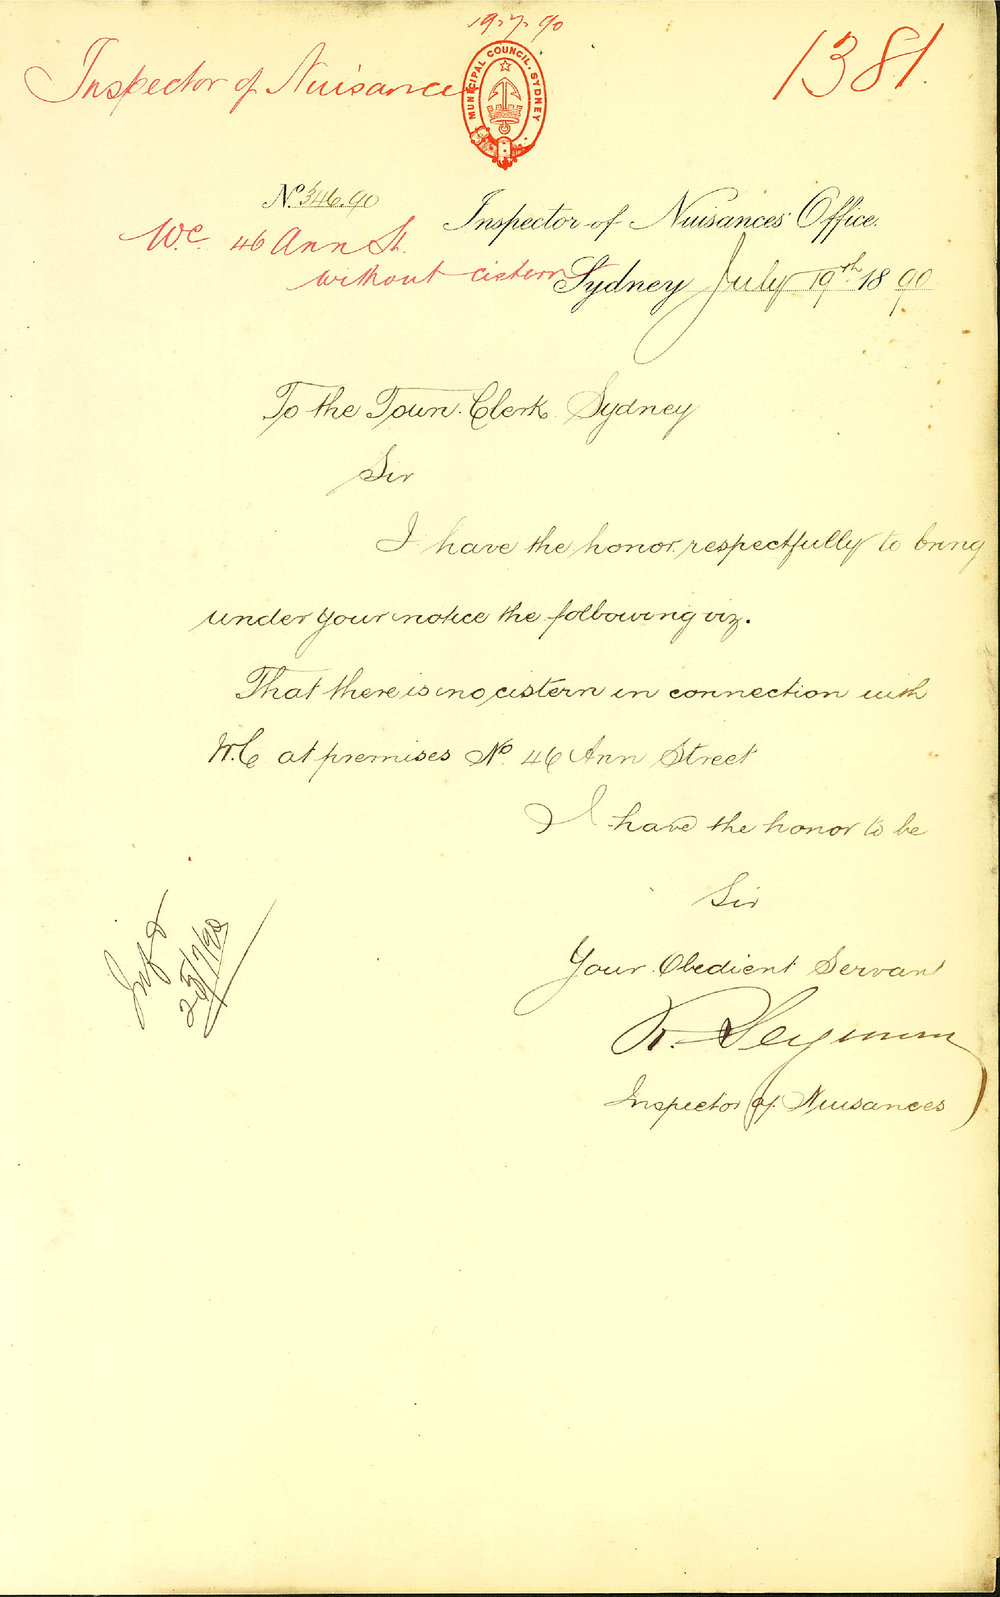 19.7.90
Inspector of Nuisances
MUNICIPAL COUNCIL. SYDNEY
1381.
No. 346.90
Inspector of Nuisances' Office.
W.C. 46 Ann St.
without cistern
Sydney July 19th 1890
To the Town Clerk Sydney
Sir
I have the honor respectfully to bring
under your notice the following viz.
That there is no cistern in connection with
W.C at premises No. 46 Ann Street
I have the honor to be
Sir
Your Obedient Servant
R. Seymour
Inspector of Nuisances
25/7/90